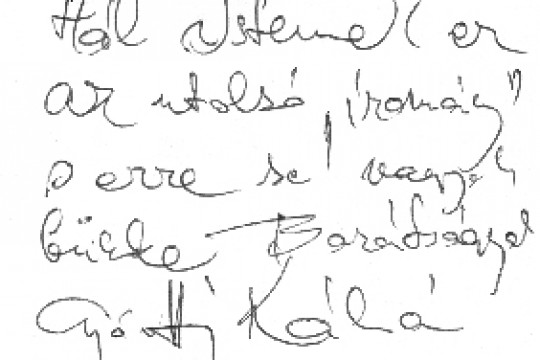 Hál Istennel ez
az utolsó "iromány"
s erre se vagyok
büszke Barátsággal
Kálmá